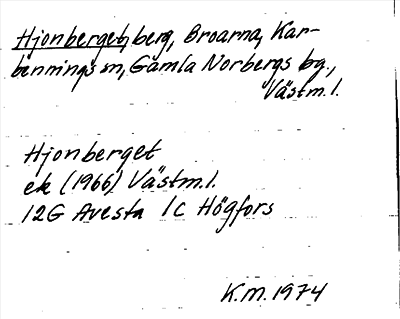 Hjonberget, berg, Broarna, Kar-
bennings sn, Gamla Norbergs bg.,
Västm.l.
Hjonberget
ek (1966) Västm.l.
12G Avesta 1c Högfors
K.M. 1974